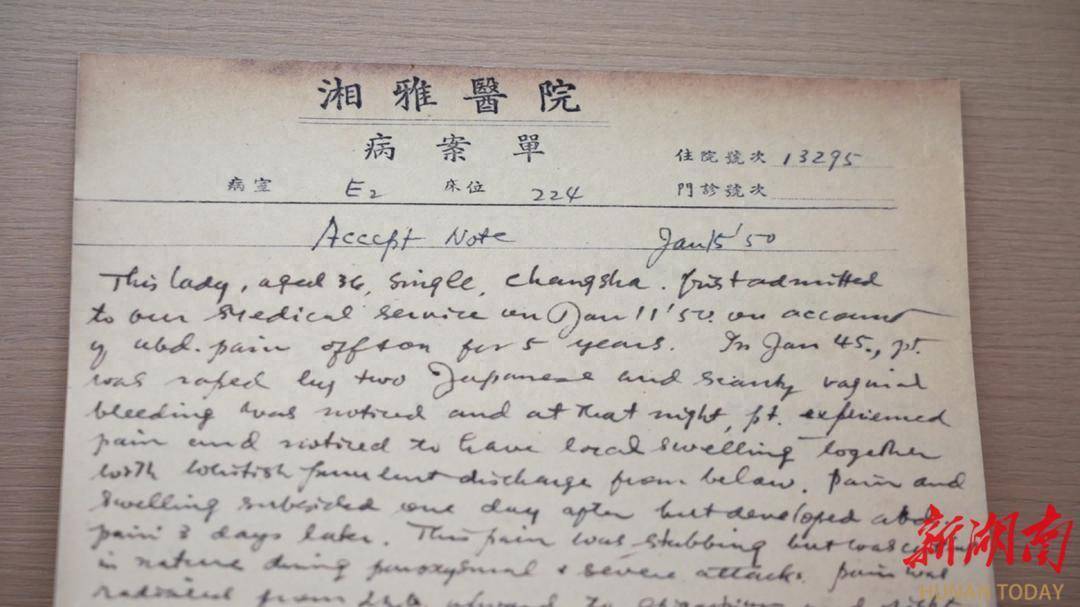 湘雅醫院
病案單
住院號次 13295
病室 E2 床位 224 門診號次
Accept Note Jan 15 '50
This lady, aged 36, single, Changsha. first admitted
to our medical service on Jan 11 '50. on account
of abd. pain off & on for 5 years. In Jan 45., pt.
was raped by two Japanese and scanty vaginal
bleeding was noticed and at that night, pt. experienced
pain and noticed to have local swelling together
with whitish purulent discharge from below. Pain and
swelling subsided one day after but developed abd.
pain 3 days later. This pain was stabbing but was
in nature during paroxysmal & severe attacks. Pain was
radiated from upward to and
新湖南
HUNAN TODAY